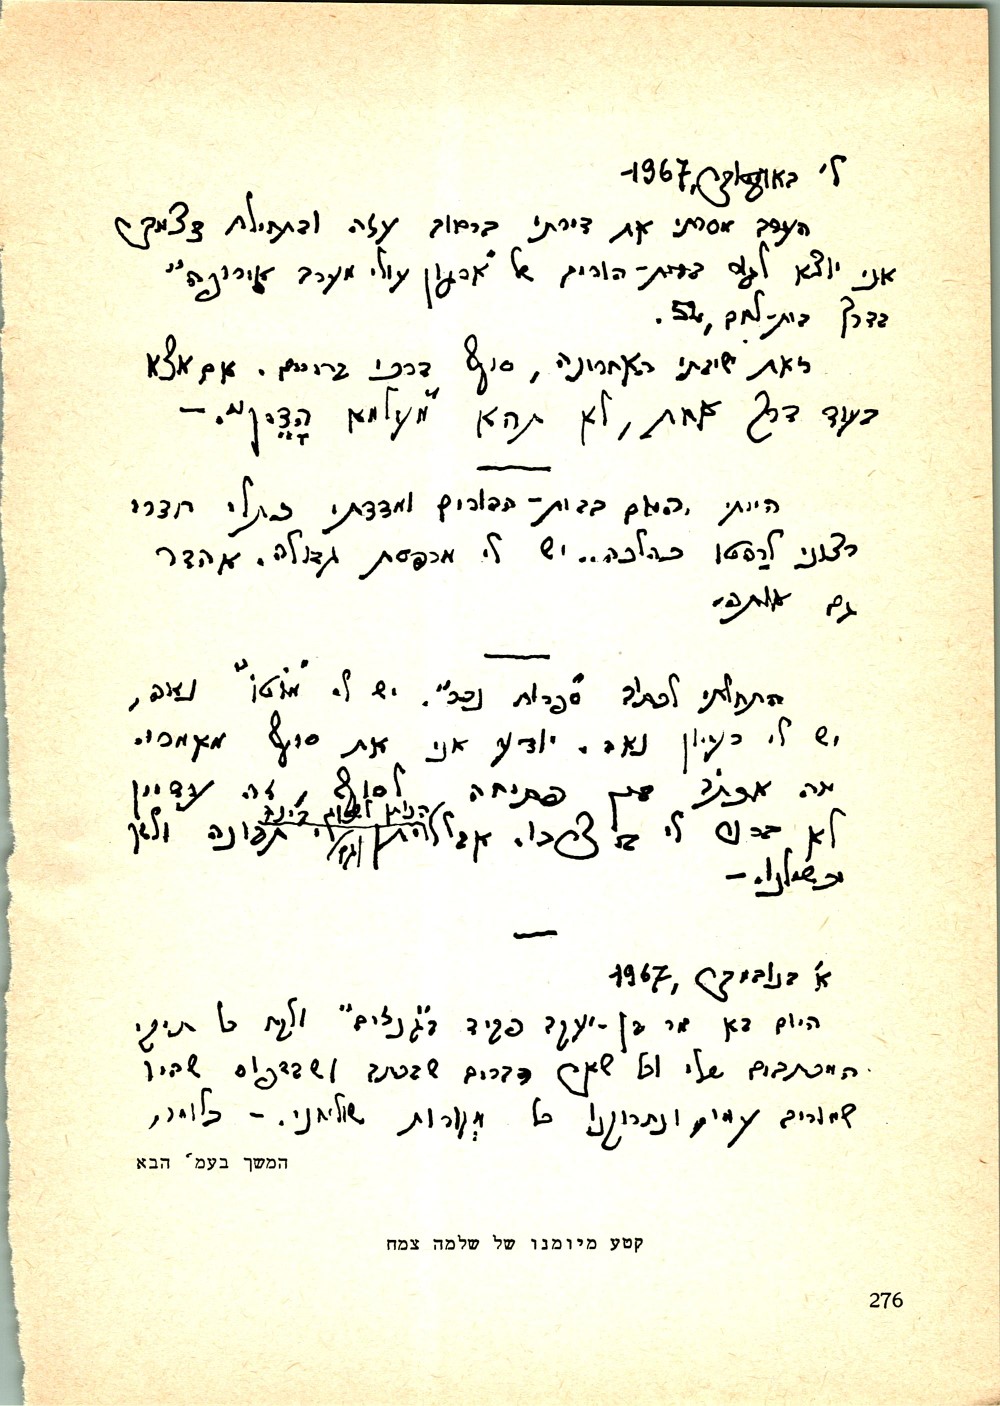 ל' באוקטובר, 1967-
הערב מסרתי את דירתי ברחוב עזה ובתחילת דצמבר
אני יוצא לגור בבית-הורים של "ארגון עולי מערב אירופה"
בדרך בית-לחם, 52.
זאת שיבתי האחרונה, סוף דרכי בחיים. אם אצא
בעוד דרך אחת, לא תהא "מעלמא הָדֵין". –
הייתי היום בבית-ההורים ומדדתי כתלי חדרי
רצוני לרהטו כהלכה.. יש לי מרפסת גדולה. אהדר
גם אותה-
התחלתי לכתוב "ספרות נכר". יש לי "מוֹטוֹ" נאה,
יש לי רעיון נאה. יודע אני את סוף מאמרי.
מה אכתוב בין פתיחה לסוף, זה עדיין
לא ברור לי כל צרכו. אבל הנותן לשכוי בינה תבונה ולשון
–
א' בנובמבר, 1967
היום בא מר בן-יעקב פקיד ב"גנזים" ולקח כל תיקי
המכתבים שלי וכל שאר דברים שבכתב ושבדפוס שהיו
שמורים עמי ונתרוקנו כל מְגֵרות שולחני. – כלומר,
המשך בעמ' הבא
קטע מיומנו של שלמה צמח
276